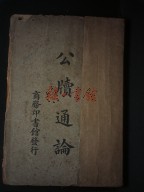 公牘通論
商務印書館發行